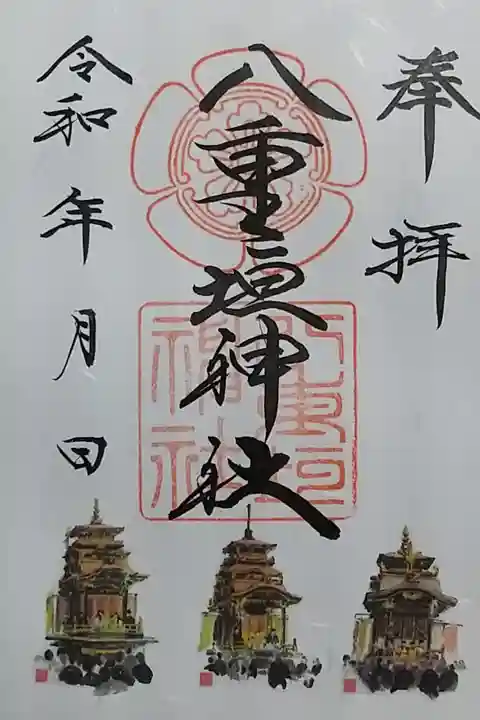 奉拝
八重垣神社
令和 年 月 日
八重垣神社